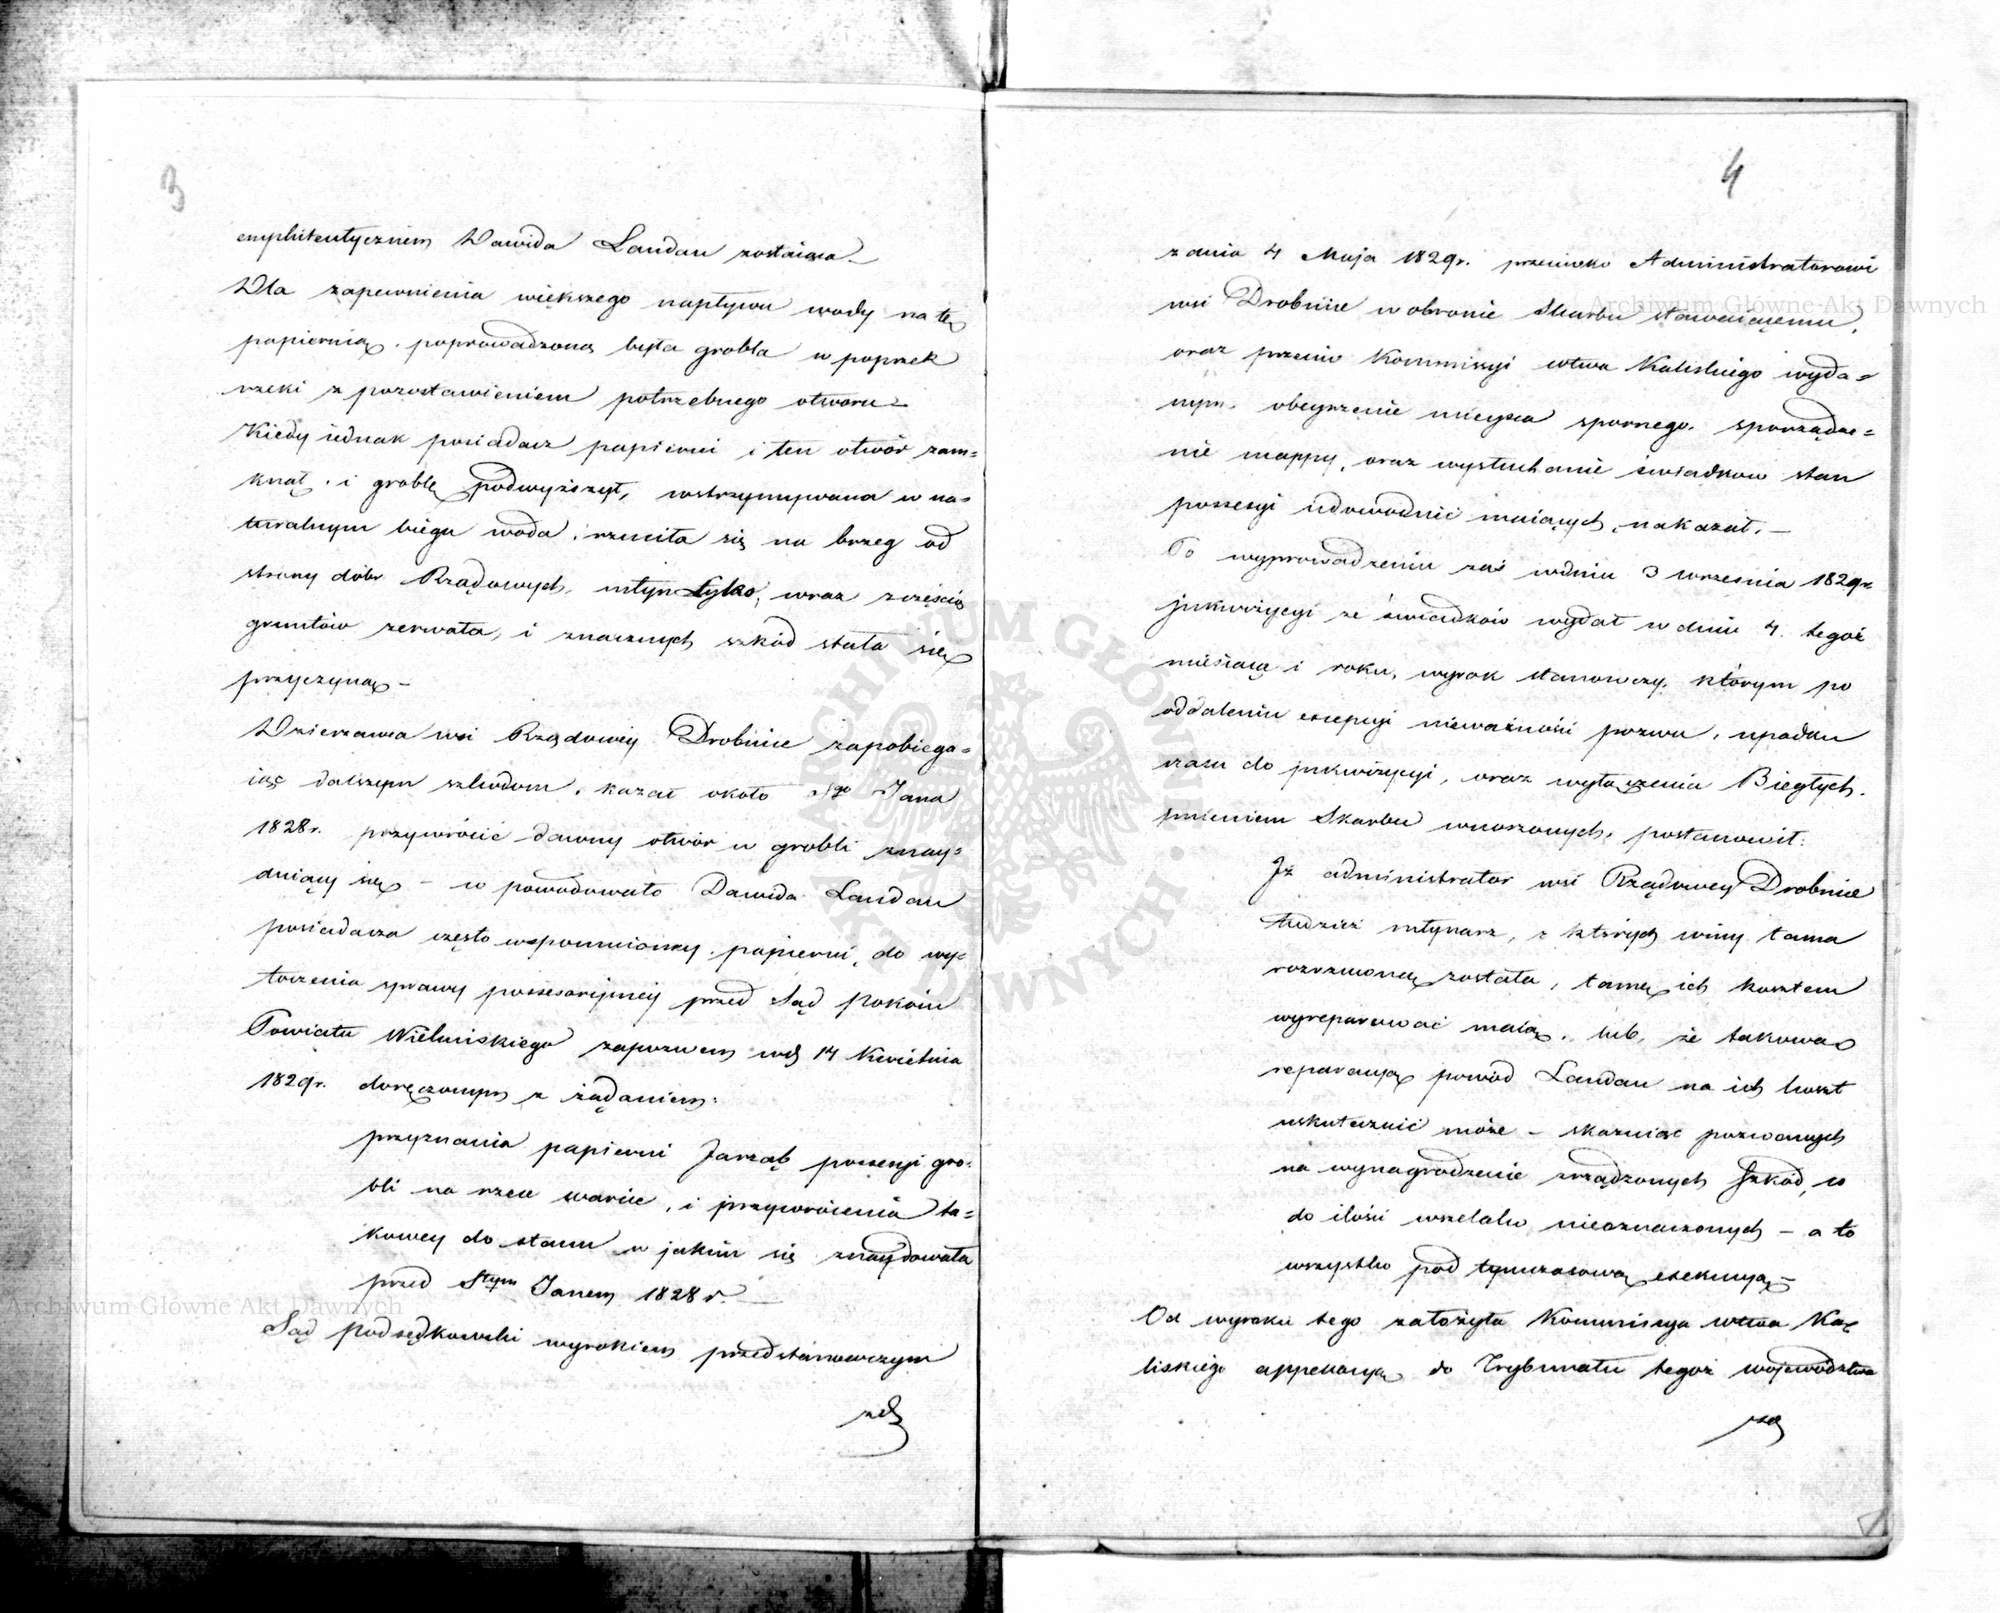 3
emphiteutycznem Dawida Landau zostaiąca
Dla zapewnienia większego napływu wody na tę
papiernią, poprowadzoną była grobla w poprzek
rzeki z pozostawieniem potrzebnego otworu
Kiedy iednak posiadacz papierni i ten otwór zam=
knął, i groblę podwyższył, wstrzymywana w na=
turalnym biegu woda, rzuciła się na brzeg od
strony dóbr Rządowych, młyn tylko, wraz z częścią
gruntów zerwała, i znacznych szkód stała się
przyczyną –
Dzierzawca wsi Rządowey Drobnice zapobiega=
iąc dalszym szkodom, kazał około Sgo Jana
1828 r. przywrócić dawny otwór w grobli znay=
duiący się – co powodowało Dawida Landau
posiadacza często wspomnioney papierni, do wy=
toczenia sprawy possessoryjnéy przed Sąd Pokoiu
Powiatu Wieluńskiego zapozwem w d. 14 Kwietnia
1829 r. doręczonym z żądaniem:
przyznania papierni Jarząb possessyi gro=
bli na rzece warcie, i przywrócenia ta=
kowey do stanu w jakim się znaydowała
przed Stym Janem 1828 r. –
Sąd podsędkowski wyrokiem przedstanowczym
4
z dnia 4 Maja 1829 r. przeciwko Administratorowi
wsi Drobnice w obronie Skarbu stawaiącemu,
oraz przeciw Kommissyi wtwa Kaliskiego wyda=
nym, obeyrzenie mieysca spornego, sporządze=
nie mappy, oraz wysłuchanie świadków stan
possesyi udowodnić maiących, nakazał. –
Po wyprowadzeniu zaś w dniu 3 września 1829 r.
jnkwizycyi ze świadków wydał w dniu 4. tegoż
miesiąca i roku, wyrok stanowczy, którym po
oddaleniu excepcyi nieważności pozwu, upadku
czasu do jnkwizycyi, oraz wyłączenia Biegłych,
jmieniem Skarbu wnoszonych, postanowił:
Jż administrator wsi Rządowey Drobnice
tudzież młynarz, z których winy tama
rozrzuconą została, tamę ich kosztem
wyreparować maią, lub, że takową
reparacyą powód Landau na ich koszt
uskutecznić może – skazuiąc pozwanych
na wynagrodzenie zrządzonych szkód, co
do ilości wszelako nieoznaczonych – a to
wszystko pod tymczasową exekucyą –
Od wyroku tego założyła Kommissya wtwa Ka=
liskiego appellacyą do Trybunału tegoż województwa
Archiwum Główne Akt Dawnych
Archiwum Główne Akt Dawnych
ARCHIWUM GŁÓWNE AKT DAWNYCH